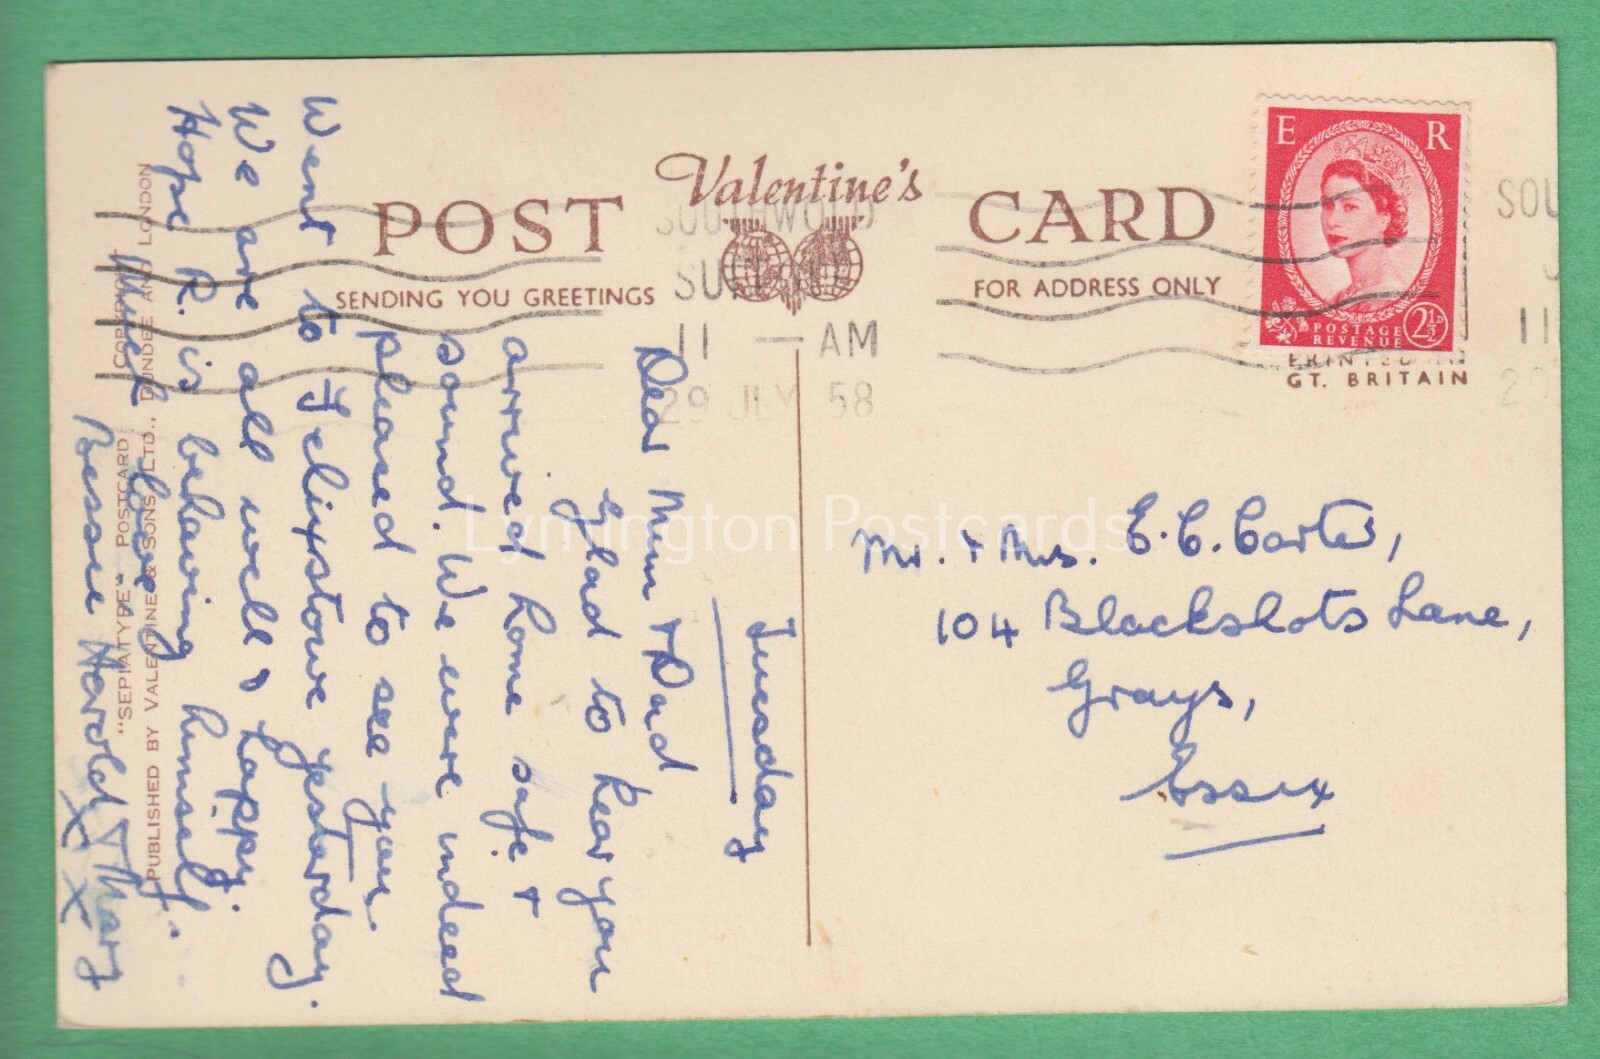 POST Valentine's CARD
SENDING YOU GREETINGS
FOR ADDRESS ONLY
SOUTHWOLD
SUFFOLK
11 — AM
29 JLY 58
E R
POSTAGE
REVENUE
2½D
PRINTED IN
GT. BRITAIN
SOU
11
29
Tuesday
Dear Mum + Dad
Glad to hear you
arrived home safe +
sound. We were indeed
pleased to see you.
Went to Felixstowe yesterday.
We are all well & happy.
Hope R. is behaving himself.
Much love
Bessie Harold & Mary
X X
Mr. + Mrs. E. C. Carter,
104 Blackshots Lane,
Grays,
Essex
COPYRIGHT
"SEPIATYPE" POSTCARD
PUBLISHED BY VALENTINE & SONS LTD., DUNDEE AND LONDON
Lymington Postcards